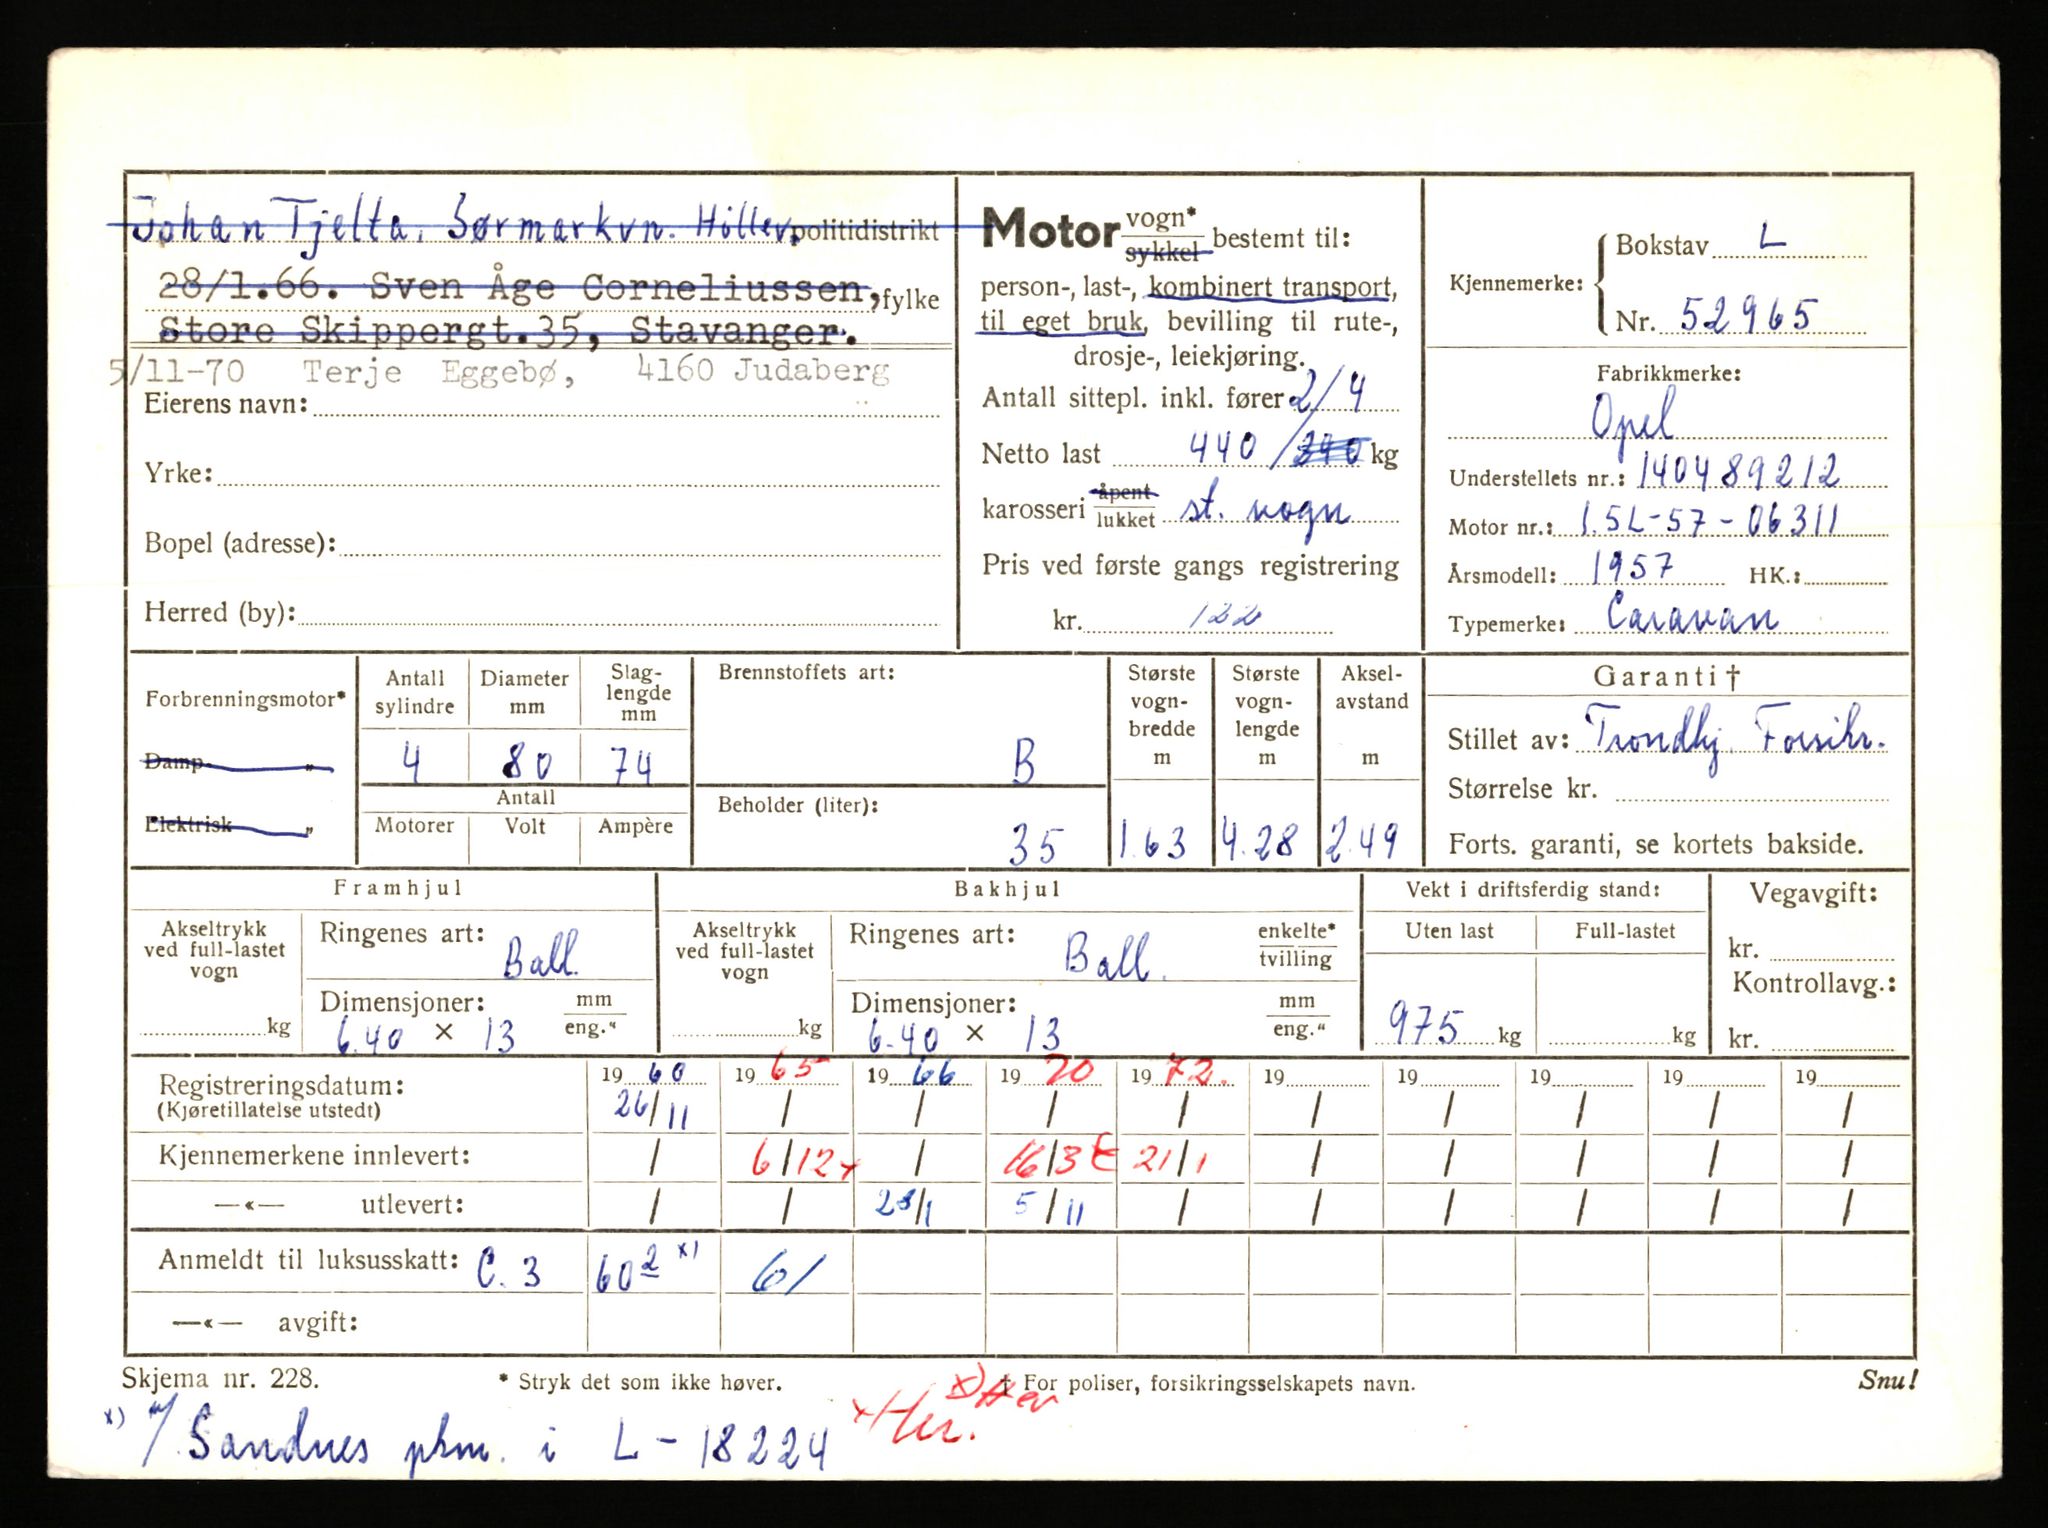 Johan Tjelta, Sørmarkvn. Hillev. politidistrikt
28/1.66. Sven Åge Corneliussen, fylke
Store Skippergt.35, Stavanger.
5/11-70 Terje Eggebø, 4160 Judaberg
Eierens navn:
Yrke:
Bopel (adresse):
Herred (by):
Motor vogn* sykkel bestemt til:
person-, last-, kombinert transport,
til eget bruk, bevilling til rute-,
drosje-, leiekjøring.
Antall sittepl. inkl. fører 2/4
Netto last 440/340 kg
karosseri åpent lukket st. vogn
Pris ved første gangs registrering
kr. 122
Kjennemerke: Bokstav L
Nr. 52965
Fabrikkmerke:
Opel
Understellets nr.: 140489212
Motor nr.: 1.5L-57-06311
Årsmodell: 1957 HK.:
Typemerke: Caravan
Forbrenningsmotor*
Damp- „
Elektrisk „
Antall sylindre Diameter mm Slag-lengde mm
4 80 74
Antall
Motorer Volt Ampère
Brennstoffets art:
B
Beholder (liter):
35
Største vogn-bredde m
1.63
Største vogn-lengde m
4.28
Aksel-avstand m
2.49
Garanti †
Stillet av: Trondhj. Forsikr.
Størrelse kr.
Forts. garanti, se kortets bakside.
Framhjul
Akseltrykk ved full-lastet vogn
kg
Ringenes art: Ball.
Dimensjoner: mm eng."
6.40 × 13
Bakhjul
Akseltrykk ved full-lastet vogn
kg
Ringenes art: Ball. enkelte* tvilling
Dimensjoner: mm eng."
6.40 × 13
Vekt i driftsferdig stand:
Uten last Full-lastet
975 kg kg
Vegavgift:
kr.
Kontrollavg.:
kr.
Registreringsdatum: 1960 1965 1966 1970 1972. 19 19 19 19 19
(Kjøretillatelse utstedt) 26/11 / / / / / / / / /
Kjennemerkene innlevert: / 6/12 x / 16/3 21/1 / / / / /
—«— utlevert: / / 28/1 5/11 / / / / / /
Anmeldt til luksusskatt: C. 3 60 2 x) 61
—«— avgift:
Skjema nr. 228. * Stryk det som ikke høver. † For poliser, forsikringsselskapets navn. Snu!
x) m/ Sandnes pkm. i L-18224